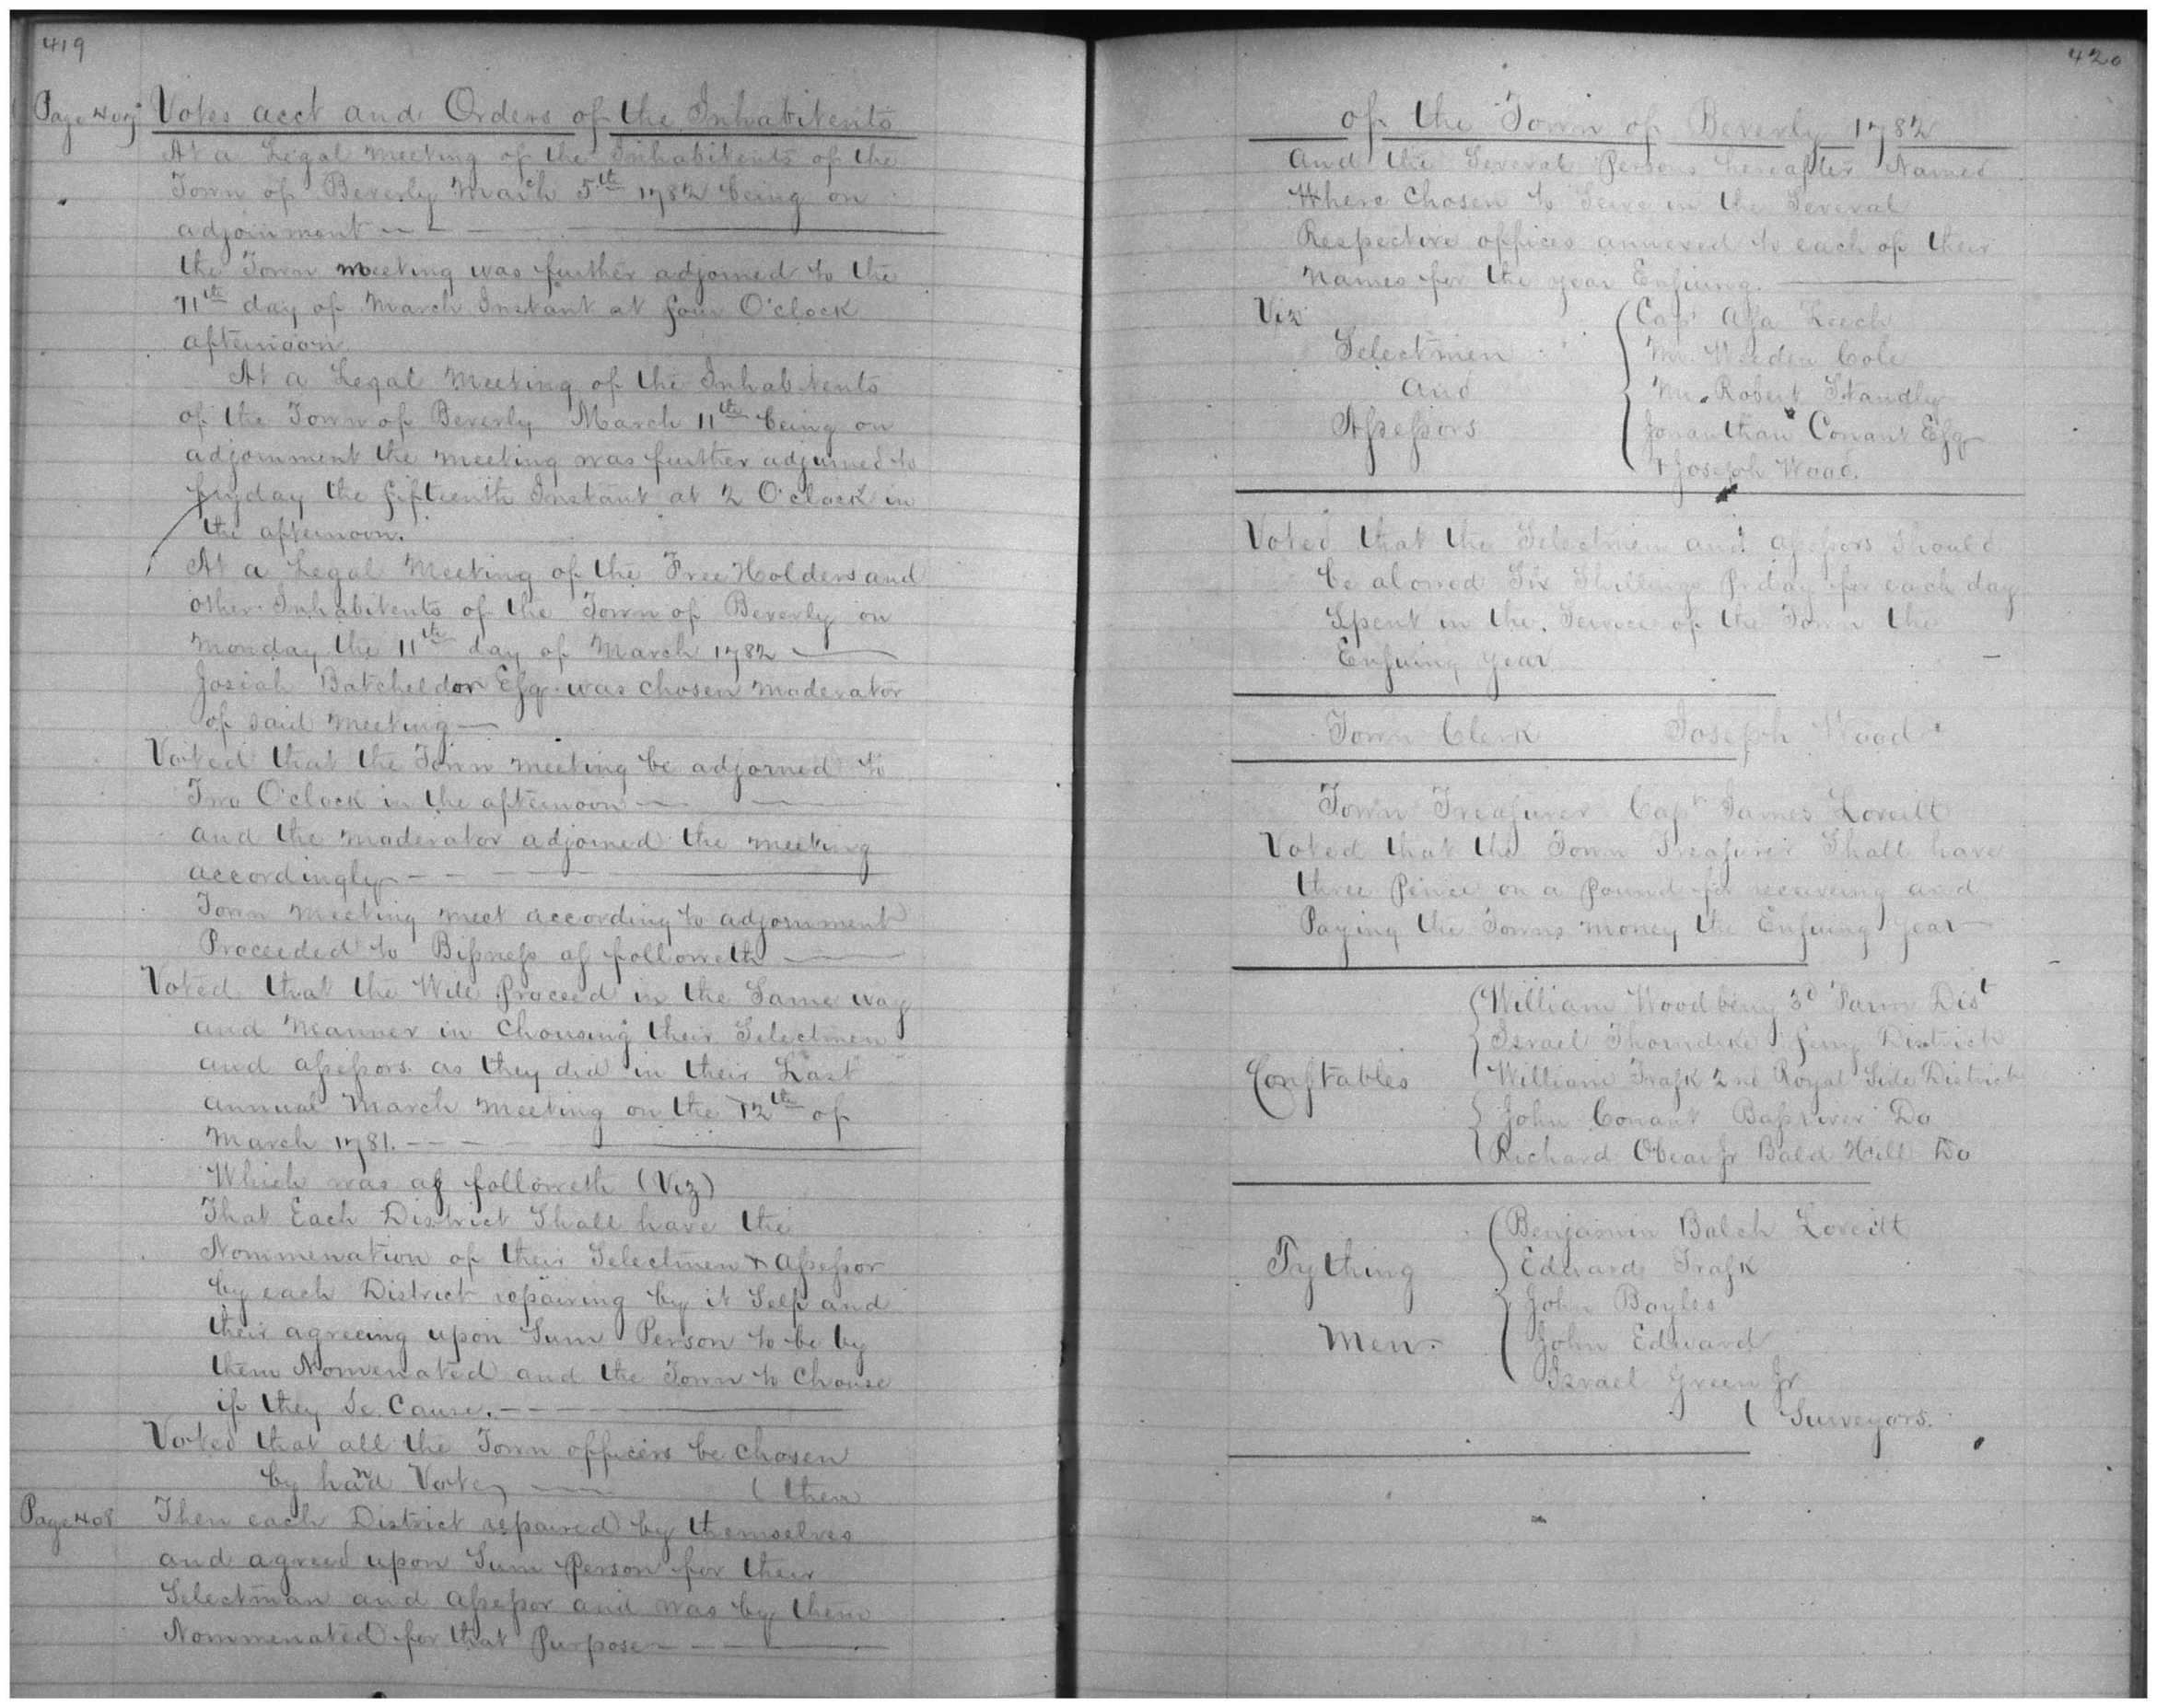 419
Page 407 Votes acct and Orders of the Inhabitents
At a Legal meeting of the Inhabitents of the
Town of Beverly March 5th 1782 being on
adjoinment
the Town meeting was further adjorned to the
11th day of March Instant at four O'clock
afternoon
At a Legal Meeting of the Inhabitents
of the Town of Beverly March 11th being on
adjornment the meeting was further adjurned to
fryday the fifteenth Instant at 2 O'clock in
the afternoon.
At a Legal Meeting of the Free Holders and
other Inhabitents of the Town of Beverly on
Monday the 11th day of March 1782
Josiah Batcheldor Esq was chosen Maderator
of said meeting
Voted that the Town meeting be adjorned to
Two O'clock in the afternoon
and the maderator adjorned the meeting
accordingly
Town meeting meet according to adjornment
Proceeded to Bisness as followeth
Voted that the Wile Proceed in the Same way
and Manner in Chousing their Selectmen
and assessors as they did in their Last
annual March meeting on the 12th of
March 1781.
Which was as followeth (Viz)
That Each District Shall have the
Nommenation of their Selectmen & Assessor
by each District repairing by it Self and
their agreeing upon Sum Person to be by
them Nomenated and the Town to Chouse
if they Se Cause.
Voted that all the Town officers be chosen
by hand Votes ( then
Page 408 Then each District repaired by themselves
and agreed upon Sum Person for their
Selectman and Assessor and was by them
Nommenated for that Purpose
420
of the Town of Beverly 1782
and the Several Persons hereafter Named
Where Chosen to Serve in the Several
Respective offices annexed to each of their
names for the year Ensuing.
Viz Capt Asa Leech
Selectmen Mr. Weeden Cole
and Mr. Robert Standley
Assessors Jonanthan Conant Esq
& Joseph Wood.
Voted that the Selectmen and assessors Should
be alowed Six Shillings Pr day for each day
Spent in the Service of the Town the
Ensuing year
Town Clerk Joseph Wood
Town Treasurer Capn James Loveitt
Voted that the Town Treasurer Shall have
three Pence on a Pound for receiveing and
Paying the Towns money the Ensuing year
William Woodbery 3d Farm Dist
Israel Thorndike ferry District
Constables William Trask 2nd Royal Side District
John Conant Bassriver Do
Richard Obear Jr Bald Hill Do
Benjamin Balch Loveitt
Tything Edward Trask
John Bayles
Men. John Edward
Israel Green Jr
( Surveyors.